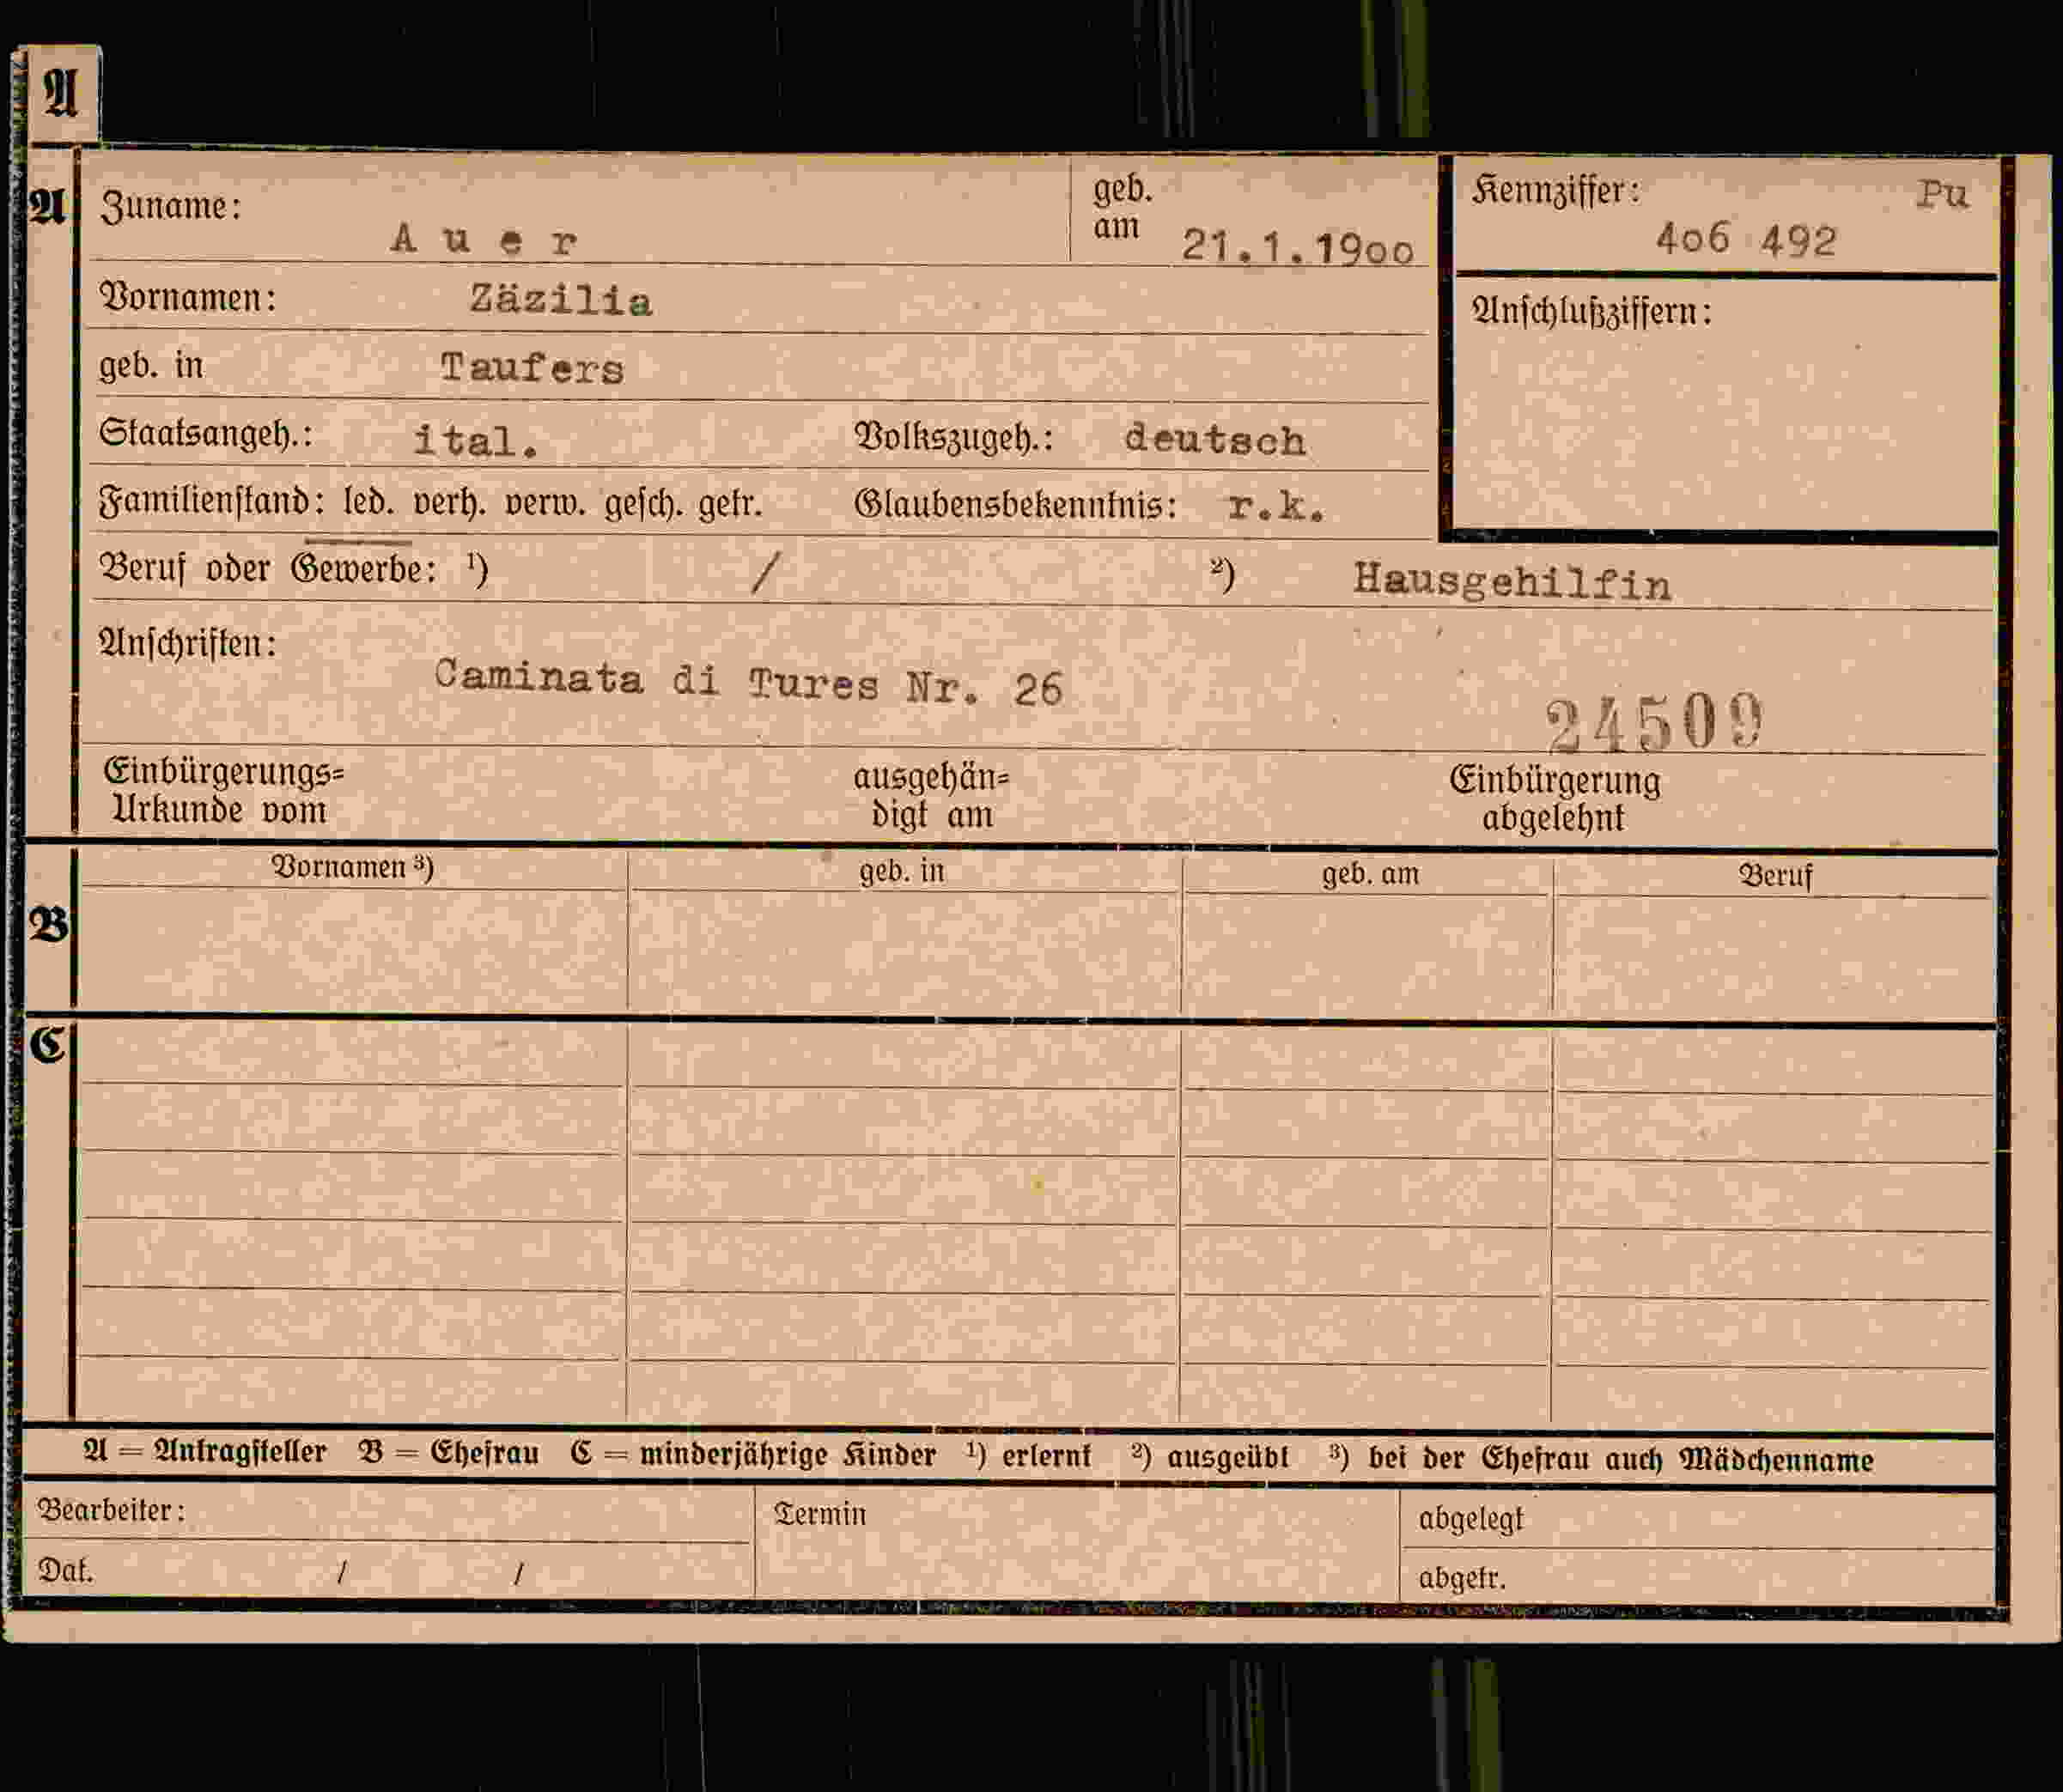 A
A Zuname: A u e r geb. am 21.1.19oo Kennziffer: Pu
4o6 492
Vornamen: Zäzilia Anschlußziffern:
geb. in Taufers
Staatsangeh.: ital. Volkszugeh.: deutsch
Familienstand: led. verh. verw. gesch. getr. Glaubensbekenntnis: r.k.
Beruf oder Gewerbe: ¹) / ²) Hausgehilfin
Anschriften:
Caminata di Tures Nr. 26
24509
Einbürgerungs= ausgehän= Einbürgerung
Urkunde vom digt am abgelehnt
Vornamen ³) geb. in geb. am Beruf
B
C
A = Antragsteller B = Ehefrau C = minderjährige Kinder ¹) erlernt ²) ausgeübt ³) bei der Ehefrau auch Mädchenname
Bearbeiter: Termin abgelegt
Dat. / / abgetr.